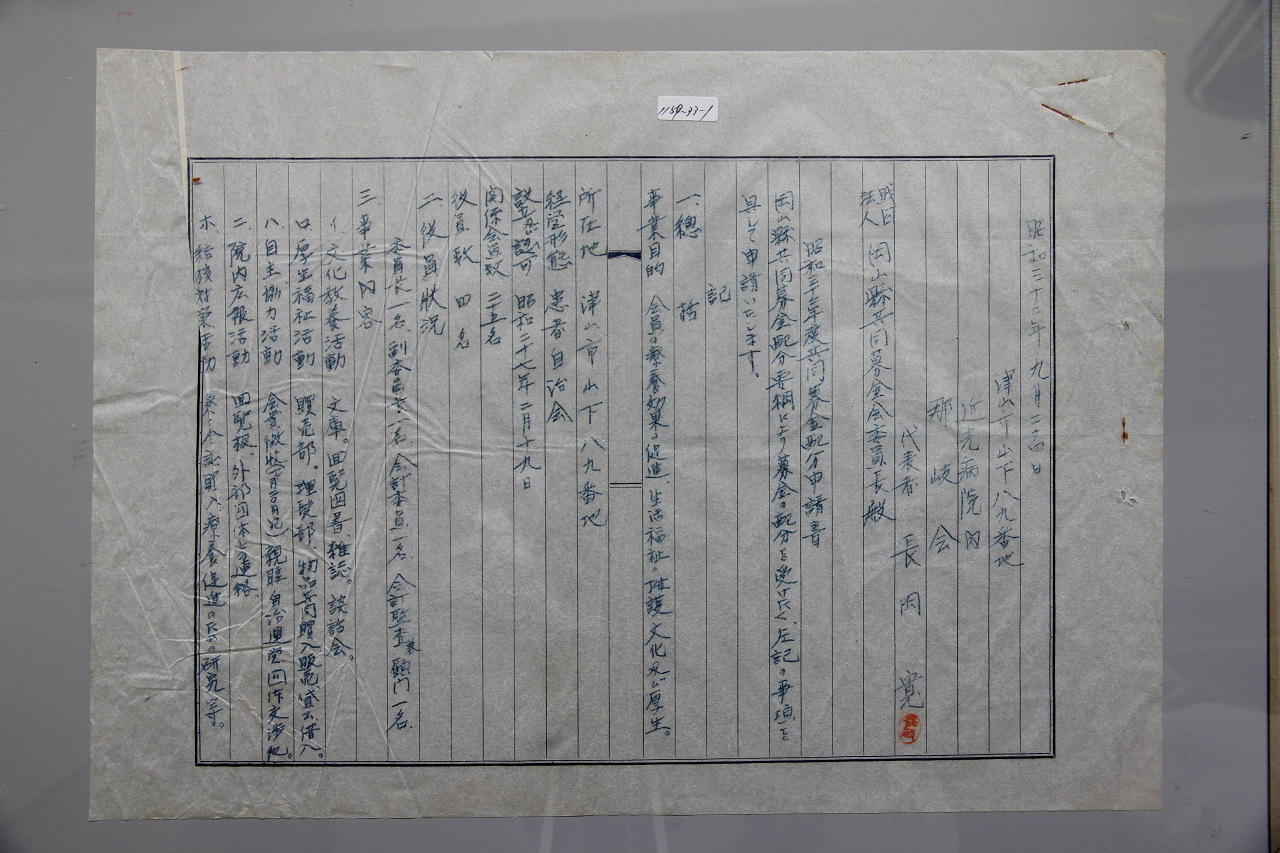 1159-33-1
昭和三十三年九月二四日
津山市山下八九番地
近光病院内
那岐会
代表者 長岡寛
長岡
財団法人 岡山縣共同募金会委員長殿
昭和三十三年度共同募金配分申請書
岡山縣共同募金配分要綱により募金の配分を受けたく、左記の事項を
具して申請いたします。
記
一、總括
事業目的 会員の療養効果の促進、生活福祉の擁護、文化及び厚生。
所在地 津山市山下八九番地
経営形態 患者自治会
設立認可 昭和二十七年二月十九日
関係会員数 二十五名
二、役員状況
役員数 四名
委員長一名、副委員長一名 会計委員一名 会計監査兼顧问一名、
三、事業内容
イ、文化教養活動 文庫。回覧図書、雑誌。談話会。
ロ、厚生福祉活動 購売部。理髪部、物品共同購入販売貸出借入。
ハ、自主協力活動 会費徴収 親睦自治運営
ニ、院内広報活動 回覧板。外部団体との連絡、
ホ、結核対策活動 療養促進の為の研究等。